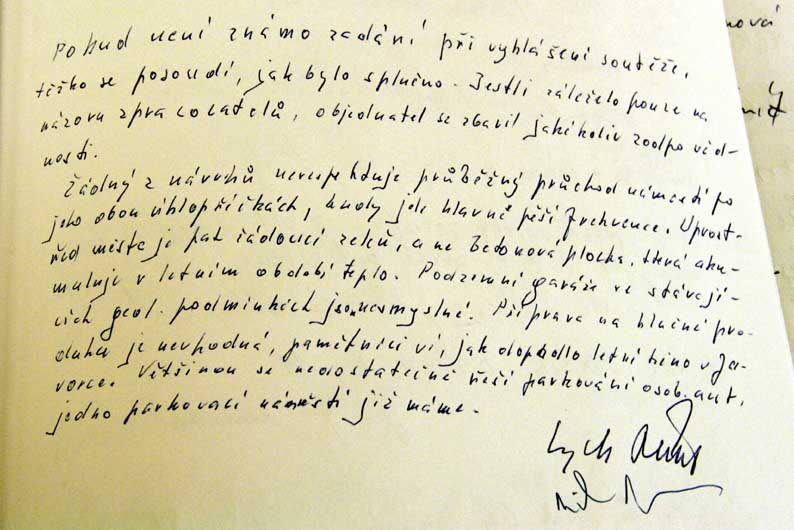 Pokud není známo zadání při vyhlášení soutěže,
těžko se posoudí, jak bylo splněno. Jestli záleželo pouze na
názoru zpracovatelů, objednatel se zbavil jakékoliv zodpověd-
nosti.
Žádný z návrhů nerespektuje průběžný průchod náměstí po
jeho obou úhlopříčkách, kudy jde hlavně pěší frekvence. Uprost-
řed města je pak žádoucí zeleň, a ne betonová plocha, která aku-
muluje v letním období teplo. Podzemní garáže ve stávají-
cích geol. podmínkách jsou nesmyslné. Příprava na hlučné pro-
dukce je nevhodná, pamětníci ví, jak dopadlo letní kino v Ja-
vorce. Většinou se nedostatečně řeší parkování osob. aut,
jedno parkovací náměstí již máme.
nová